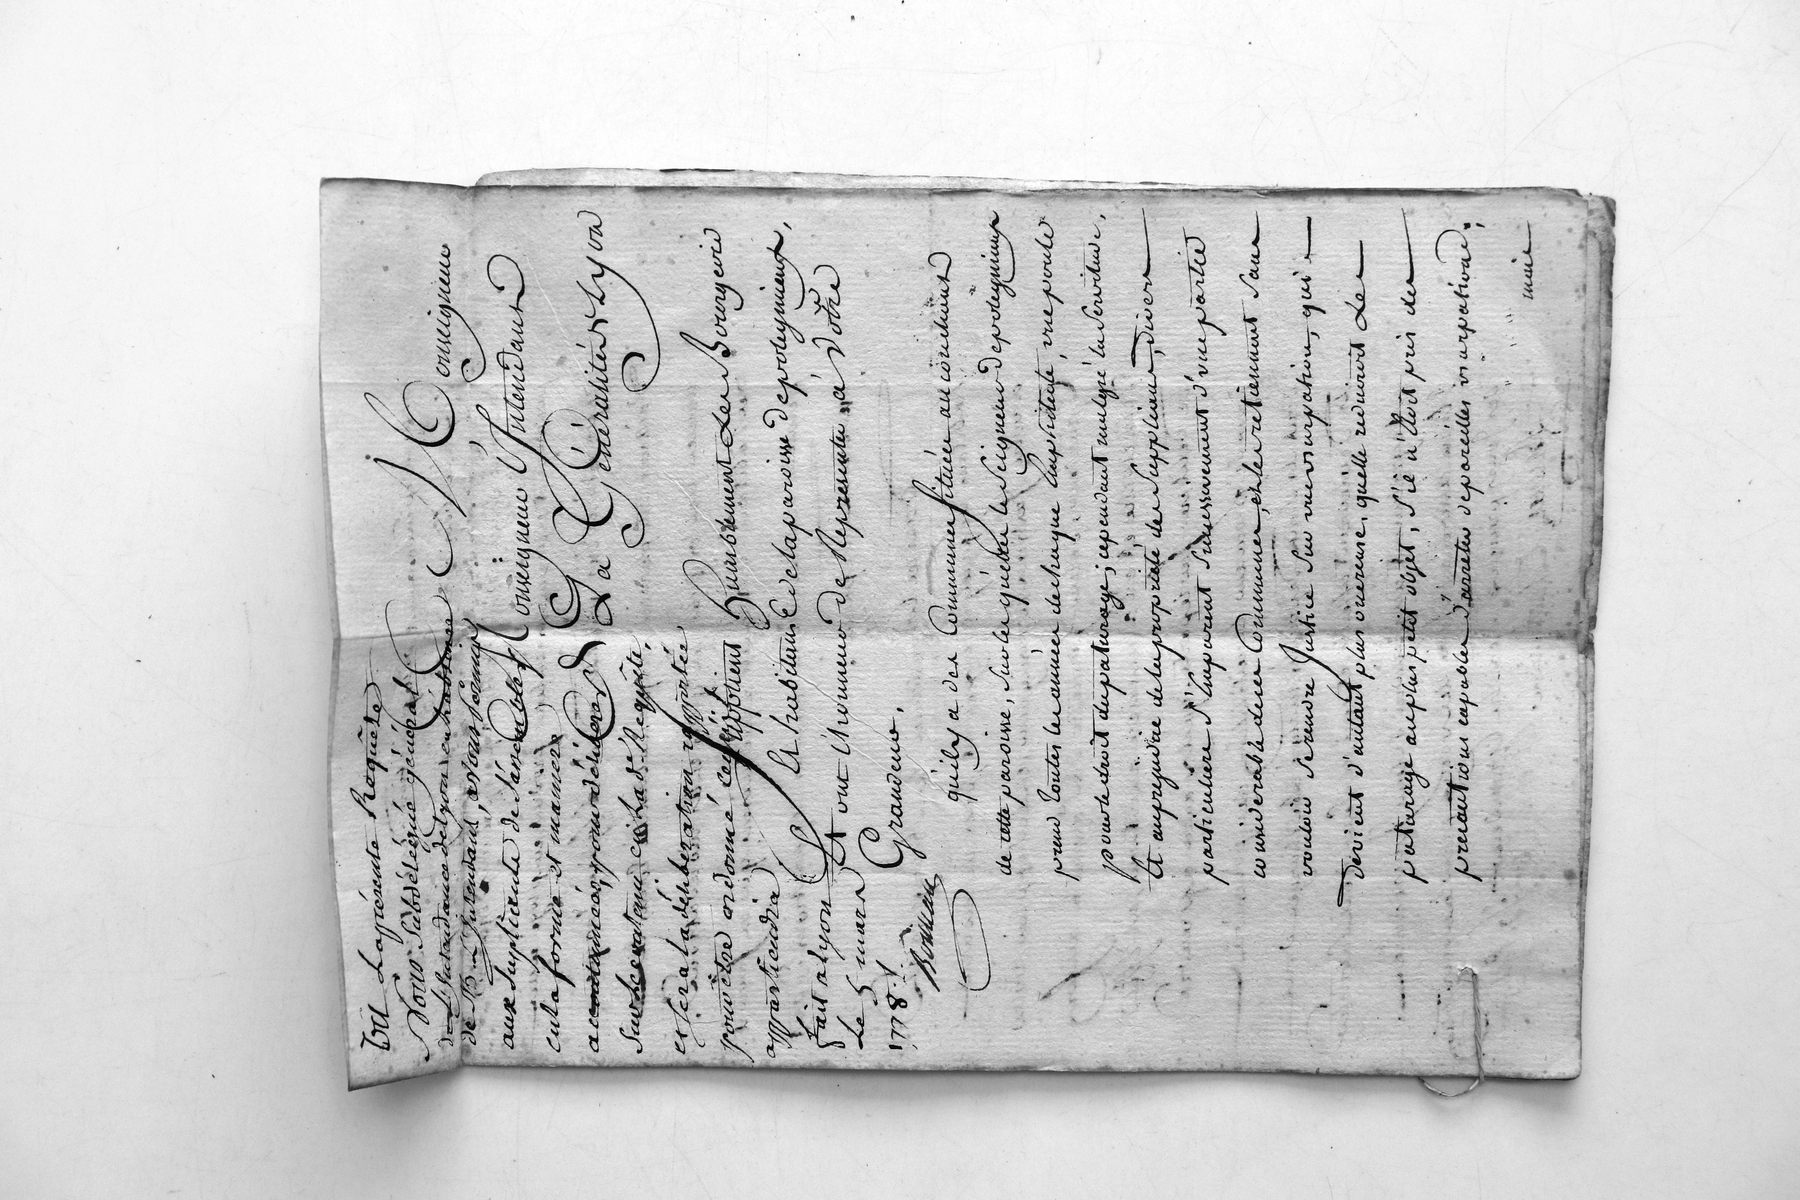 Vû La présente Requête
Nous Subdélégué général
de L'Intendance de Lyon en l'absence
de M. L'Intendant, avons permis
aux Supliants de s'assembler
en la forme et maniere
accoutumées, pour déliberer
sur le contenu en lad. Requête,
et sera la déliberation rapportée
pour être ordonné ce qu'il
appartiendra
fait a Lyon
Le 5 mars
1778./.
A Monseigneur
Monseigneur L'Intendant
De
La Généralité de Lyon
Supplient humblement Les Bourgeois
Et habitans de la paroisse de poleymieux,
Et ont L'honneur de Représenter à Votre
Grandeur,
qu'il y a des Communes Situées au couchant
de cette paroisse, sur lesquelles le Seigneur de poleymieux
prend toutes les années de chaque habitant, une poule
pour le droit de paturage; cependant malgré la Servitude,
Et au prejudice de la propriété des Supplians, divers
particuliers s'emparent Successivement d'une partie
considerable de ces Communes, et les retiennent sans
vouloir se rendre Justice sur une usurpation, qui
devient d'autant plus onereuse, qu'elle reduiroit Le
paturage au plus petit objet, s'il n'étoit pris des
precautions capables d'arreter de pareilles usurpations;
mais